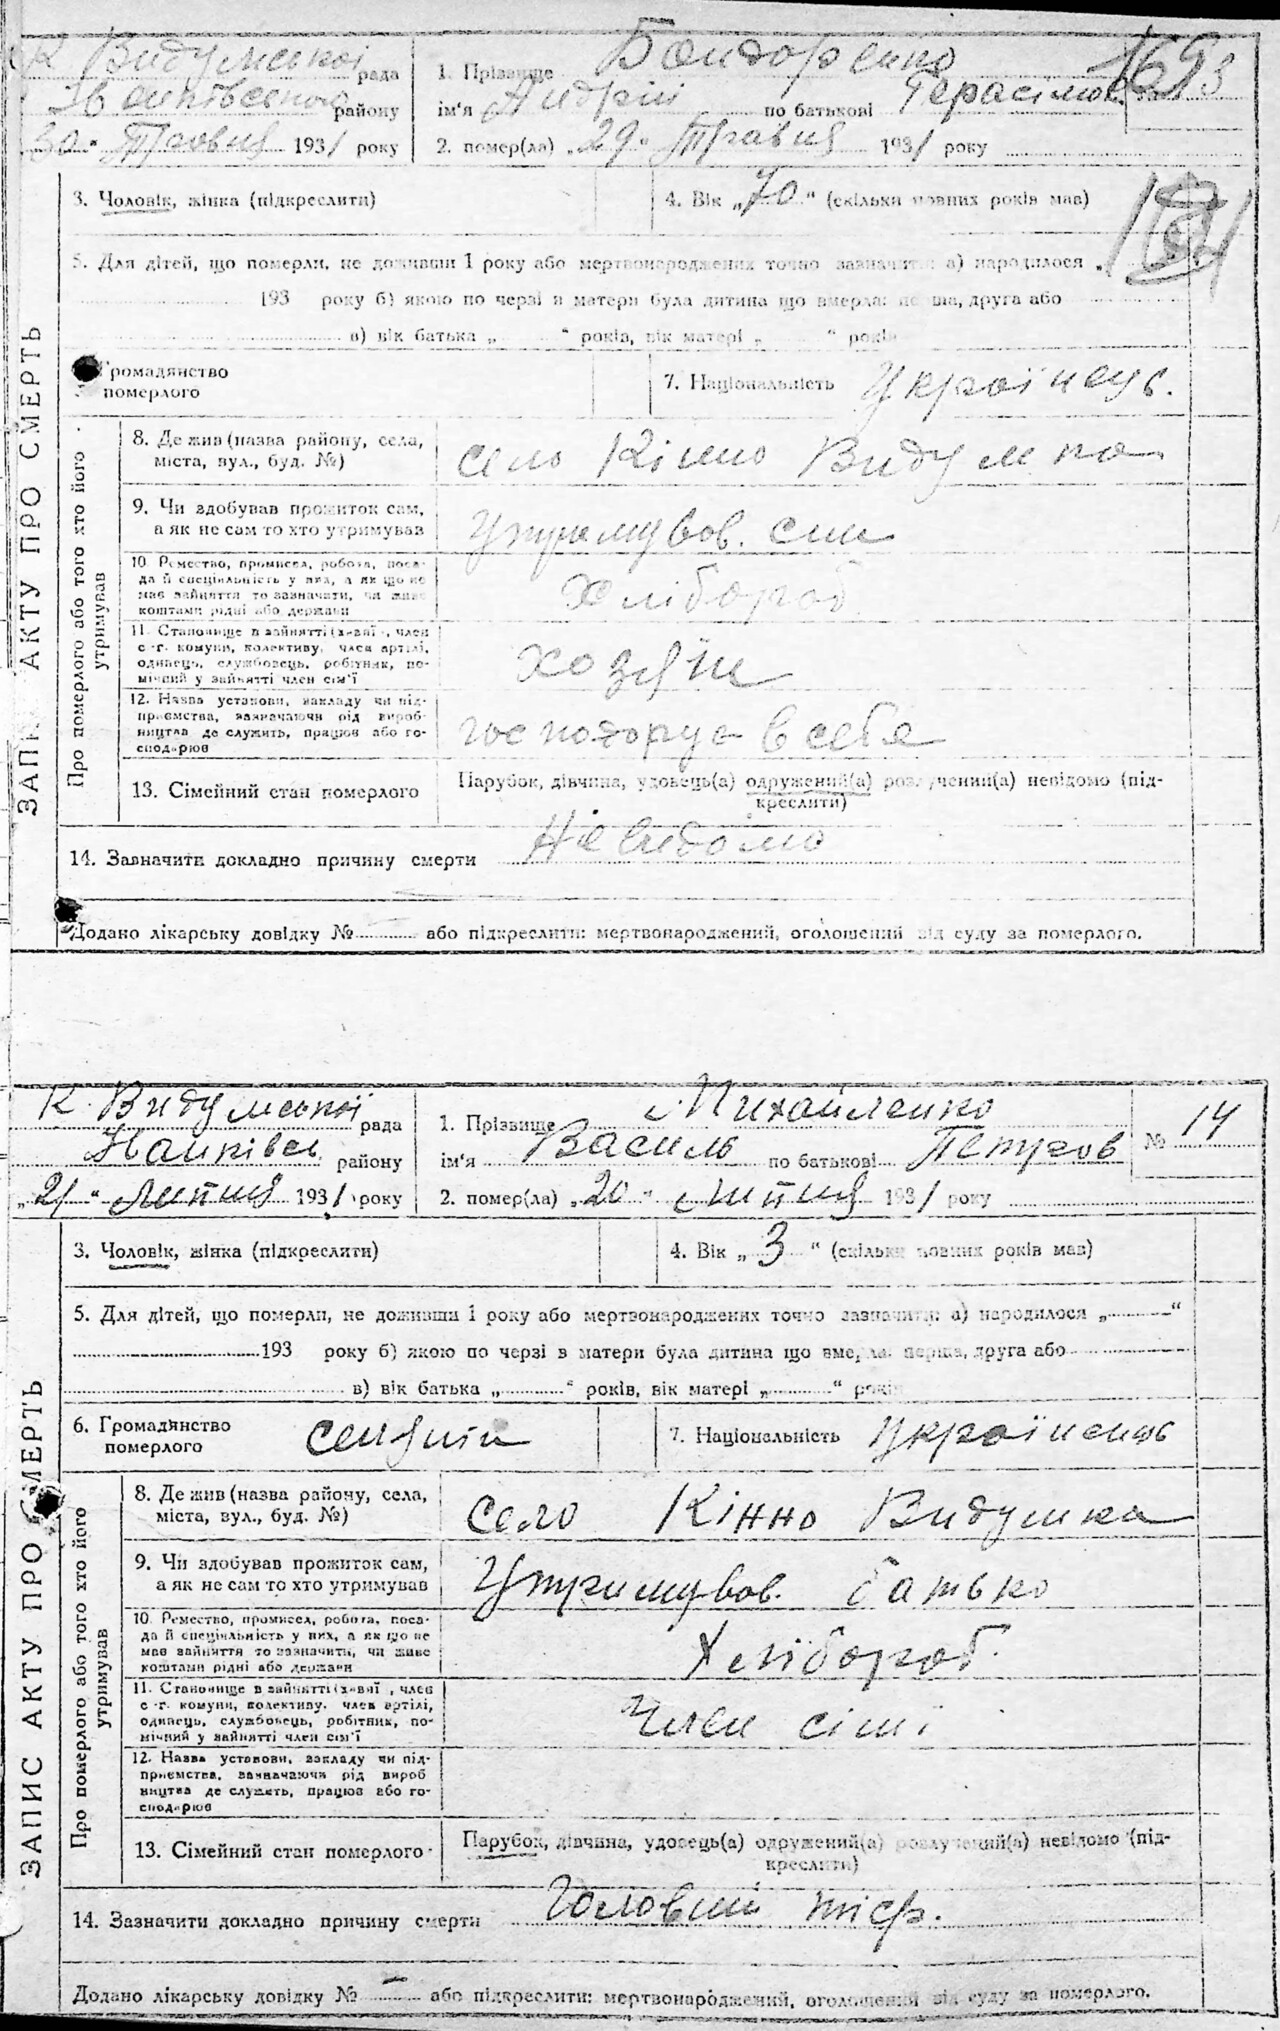 К. Видумської рада
Іванківського району
"30" Травня 1931 року
1. Прізвище Бондоренко
ім'я Андрій по батькові Герасімов
2. помер(ла) "29" Травня 1931 року
1693
3. Чоловік, жінка (підкреслити)
4. Вік "70" (скільки повних років мав)
5. Для дітей, що померли, не доживши 1 року або мертвонароджених точно зазначити: а) народилося "
193 року б) якою по черзі в матери була дитина що вмерла: перша, друга або
в) вік батька " " років, вік матері " " років
ЗАПИС АКТУ ПРО СМЕРТЬ
Громадянство
померлого
7. Національність Українець.
Про померлого або того хто його
утримував
8. Де жив (назва району, села,
міста, вул., буд. №)
село Кінно Видумка
9. Чи здобував прожиток сам,
а як не сам то хто утримував
Утримував. син
10. Ремество, промисел, робота, поса-
да й спеціяльність у них, а як що не
має зайняття то зазначити, чи живе
коштами рідні або держави
Хлібороб
11. Становище в зайнятті (хазяї , член
с.-г. комуни, колективу, член артілі,
одинець, службовець, робітник, по-
мічний у зайнятті член сім'ї
хозяїн
12. Назва установи, закладу чи під-
приємства, зазначаючи рід вироб-
ництва де служить, працює або го-
сподарює
господорує в себе
13. Сімейний стан померлого
Парубок, дівчина, удовець(а) одружений(а) розлучений(а) невідомо (під-
креслити)
14. Зазначити докладно причину смерти Невидомо
Додано лікарську довідку № або підкреслити: мертвонароджений, оголошений від суду за померлого.
К. Видумської рада
Іванківськ. району
"21" Липня 1931 року
1. Прізвище Михайленко
ім'я Василь по батькові Петров
№ 14
2. помер(ла) "20" Липня 1931 року
3. Чоловік, жінка (підкреслити)
4. Вік "3" (скільки повних років мав)
5. Для дітей, що померли, не доживши 1 року або мертвонароджених точно зазначити: а) народилося " "
193 року б) якою по черзі в матери була дитина що вмерла: перша, друга або
в) вік батька " " років, вік матері " " років
ЗАПИС АКТУ ПРО СМЕРТЬ
6. Громадянство
померлого
7. Національність Українець
Про померлого або того хто його
утримував
8. Де жив (назва району, села,
міста, вул., буд. №)
село Кінно Видумка
9. Чи здобував прожиток сам,
а як не сам то хто утримував
Утримував. батько
10. Ремество, промисел, робота, поса-
да й спеціяльність у них, а як що не
має зайняття то зазначити, чи живе
коштами рідні або держави
Хлібороб.
11. Становище в зайнятті (хазяї , член
с.-г. комуни, колективу, член артілі,
одинець, службовець, робітник, по-
мічний у зайнятті член сім'ї
Член сімї
12. Назва установи, закладу чи під-
приємства, зазначаючи рід вироб
ництва де служить, працює або го-
сподарює
13. Сімейний стан померлого
Парубок, дівчина, удовець(а) одружений(а) розлучений(а) невідомо (під-
креслити)
14. Зазначити докладно причину смерти Головний тіф.
Додано лікарську довідку № — або підкреслити: мертвонароджений, оголошений від суду за померлого.